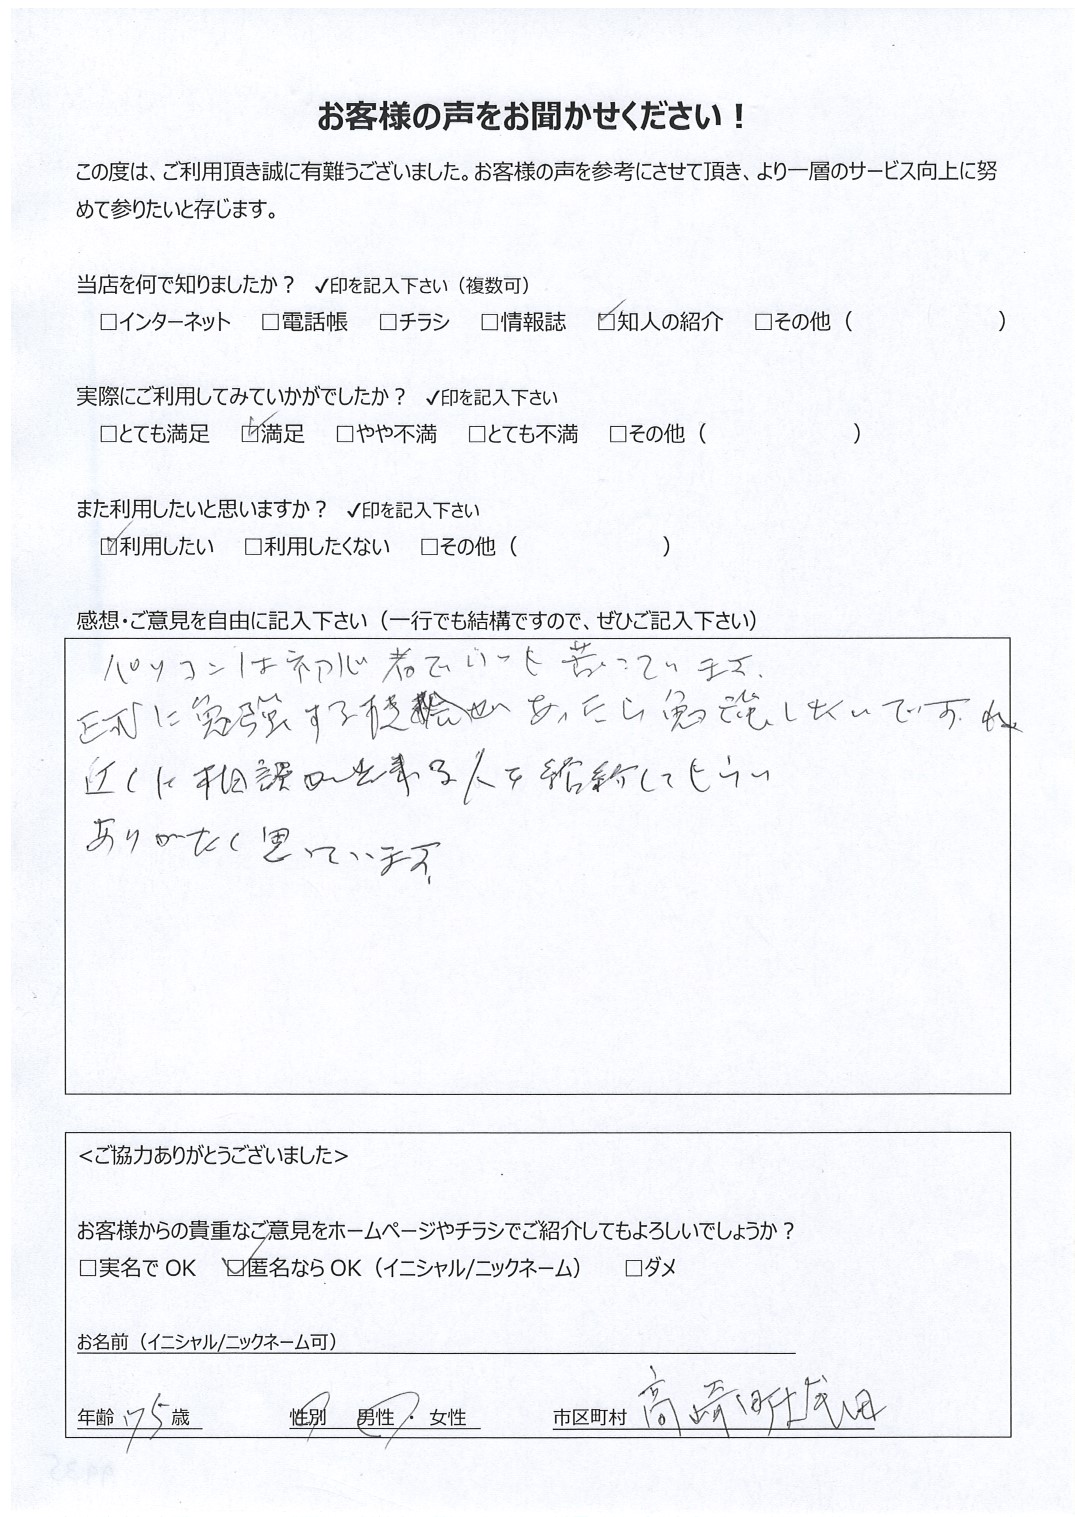 お客様の声をお聞かせください！
この度は、ご利用頂き誠に有難うございました。お客様の声を参考にさせて頂き、より一層のサービス向上に努
めて参りたいと存じます。
当店を何で知りましたか？ ✓印を記入下さい（複数可）
□インターネット □電話帳 □チラシ □情報誌 ☑知人の紹介 □その他（ ）
実際にご利用してみていかがでしたか？ ✓印を記入下さい
□とても満足 ☑満足 □やや不満 □とても不満 □その他（ ）
また利用したいと思いますか？ ✓印を記入下さい
☑利用したい □利用したくない □その他（ ）
感想・ご意見を自由に記入下さい（一行でも結構ですので、ぜひご記入下さい）
パソコンは初心者でいつも苦っています.
に勉強する機会があったら勉強したいですね
近くに相談が出来る人を紹介してもらい
ありがたく思っています.
<ご協力ありがとうございました>
お客様からの貴重なご意見をホームページやチラシでご紹介してもよろしいでしょうか？
□実名でOK ☑匿名ならOK（イニシャル/ニックネーム） □ダメ
お名前（イニシャル/ニックネーム可）
年齢 75 歳 性別 男性 ・ 女性 市区町村 高崎町